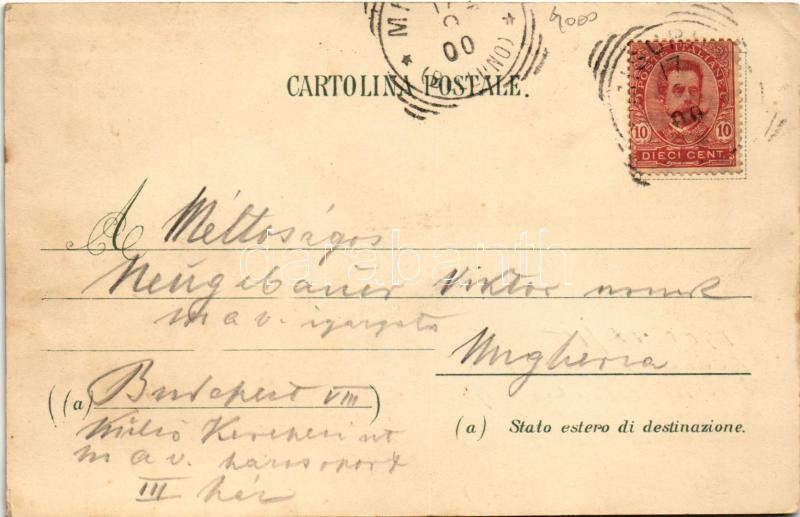 9000
MA
00
CARTOLINA POSTALE.
17
00
POSTE ITALIANE
10 10
DIECI CENT.
A Méltoságos
Neugebauer Viktor urnak
m a v. igazgato
Ungheria
((a) Budapest VIII)
Külső Kerepesi ut
m a v.
III ház
(a) Stato estero di destinazione.
darabanth